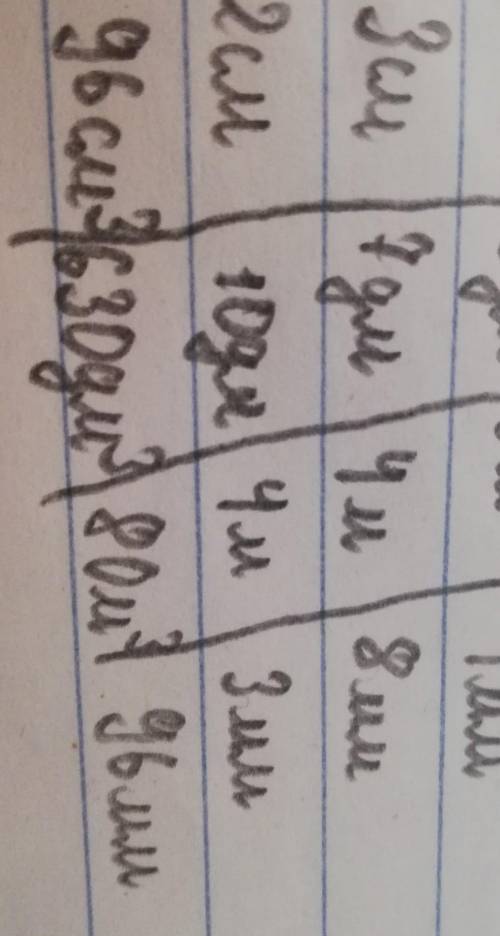 3см 7дм 4м 8мм
2см 10дм 4м 3мм
96см³ 630дм³ 80м³ 96мм